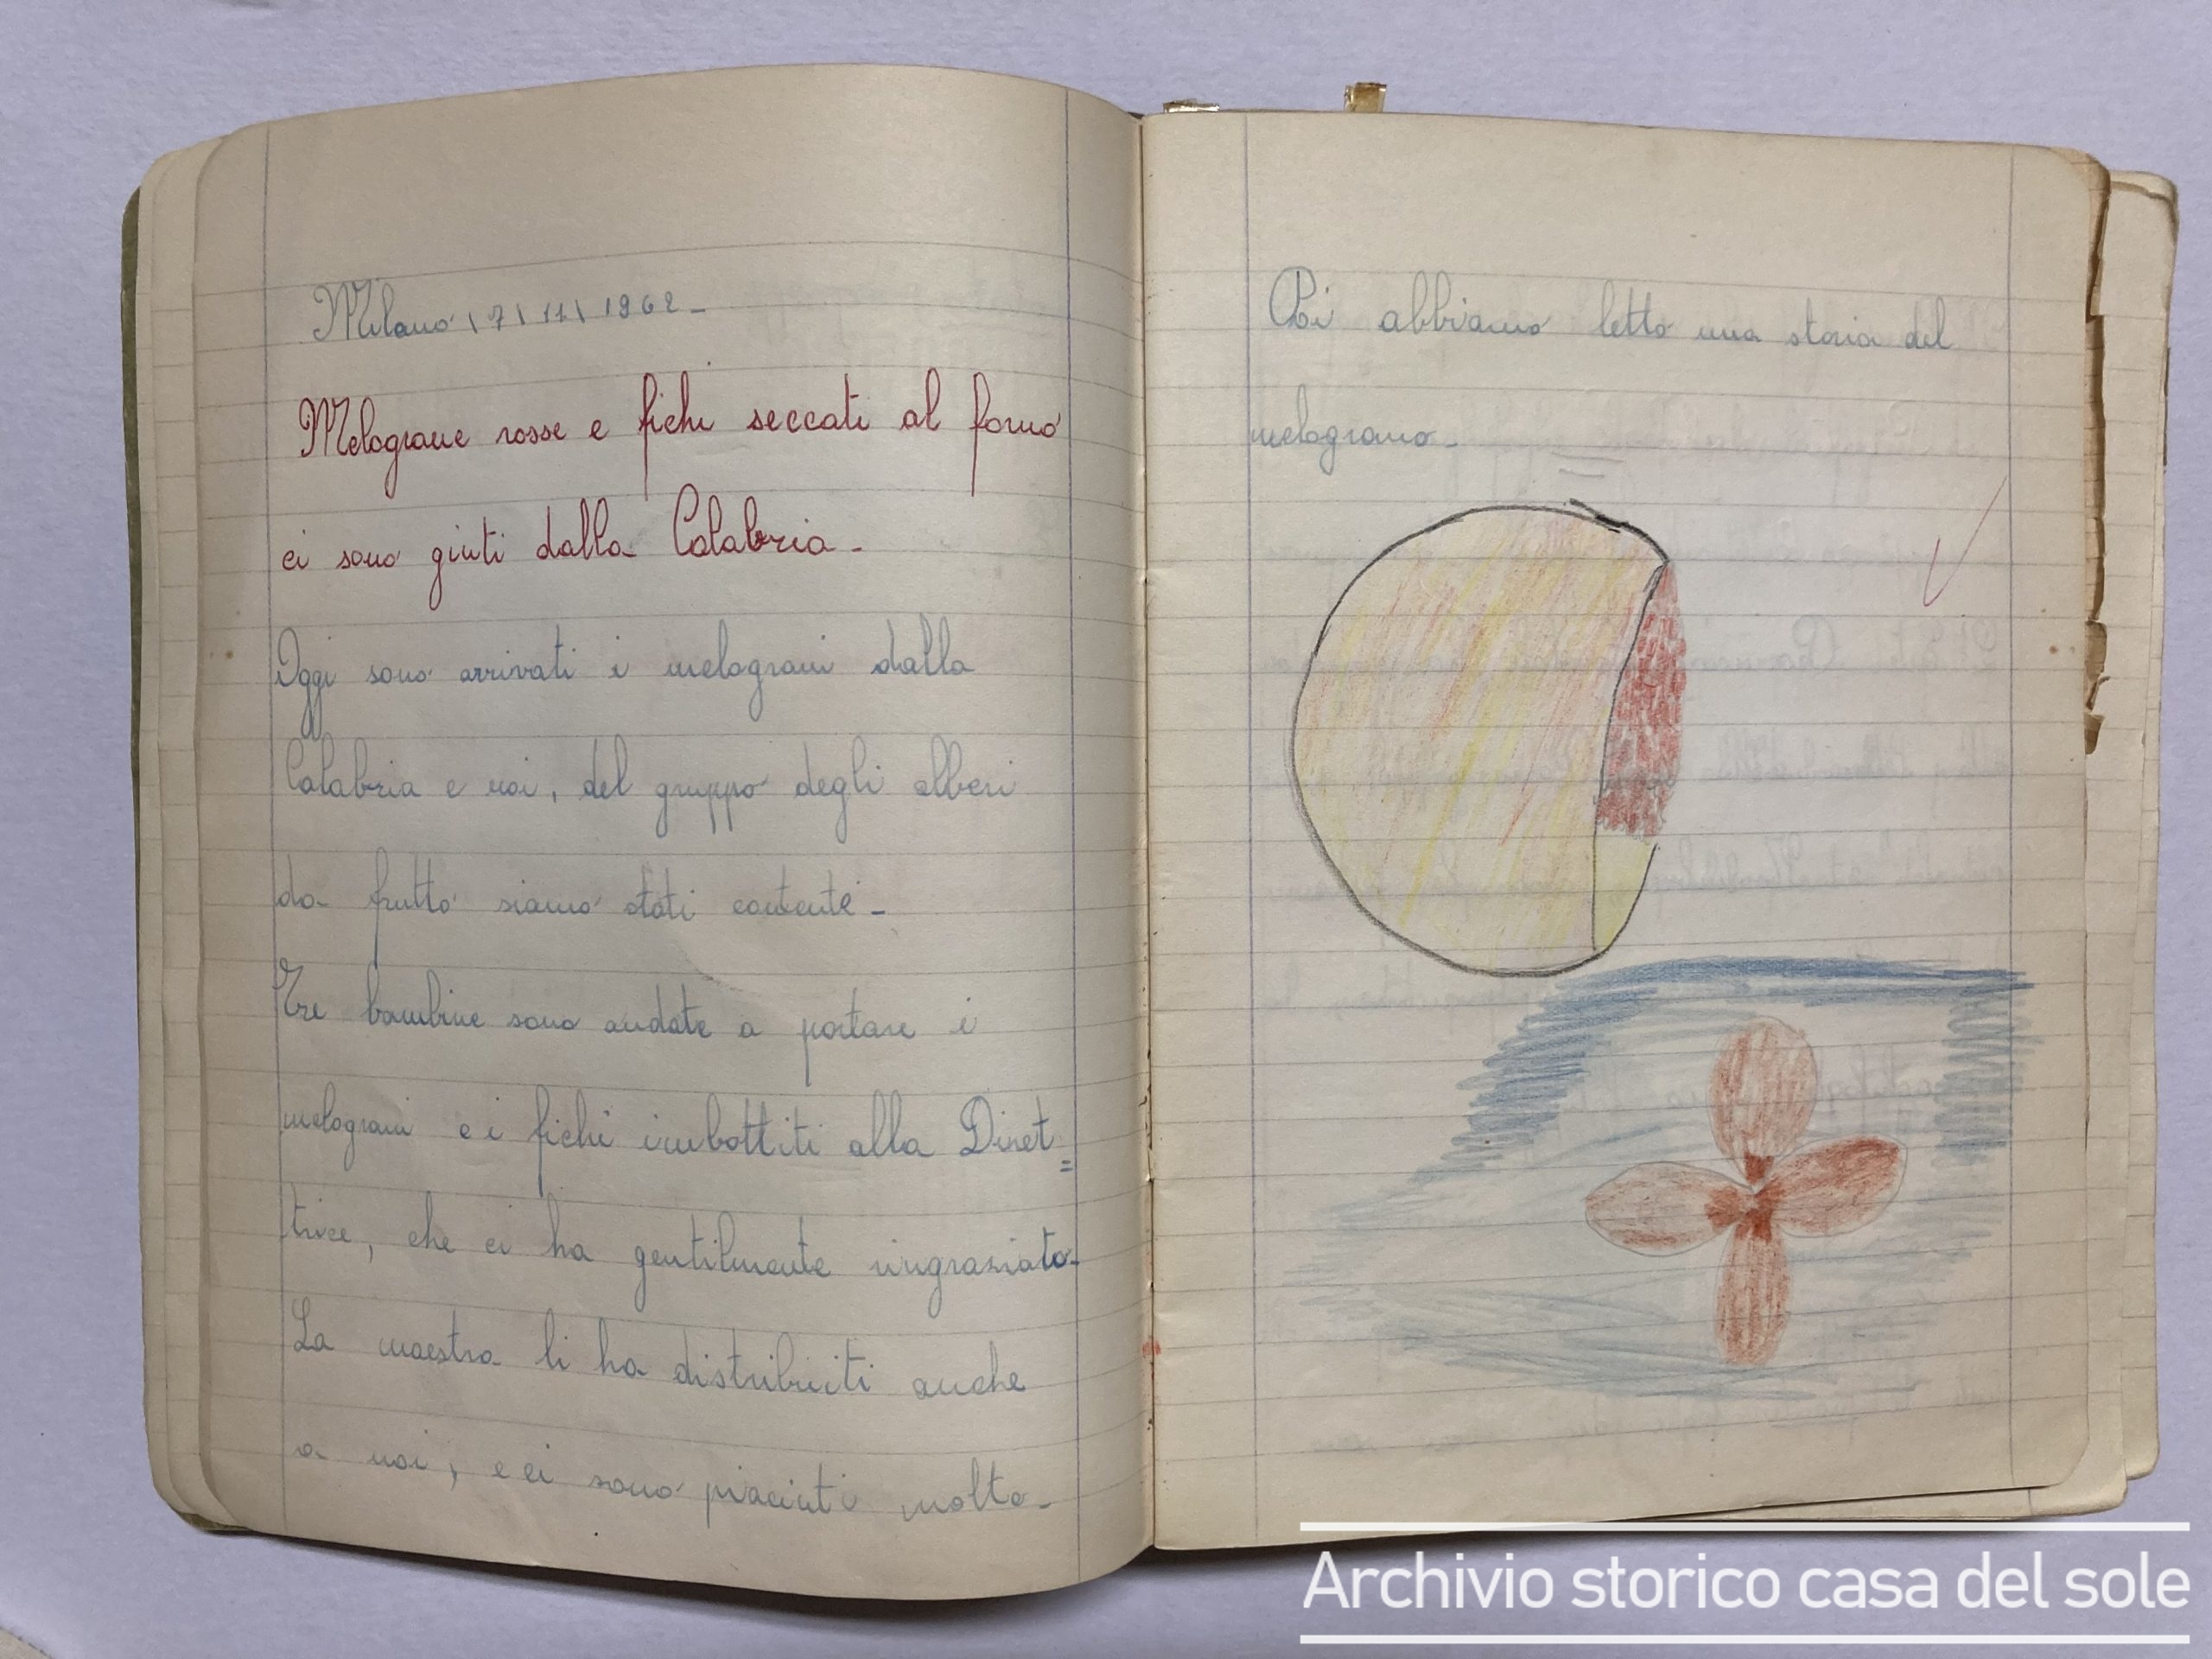 Milano \ 7 \ 11 \ 1962-
Melograne rosse e fichi seccati al forno
ci sono giuti dalla Calabria-
Oggi sono arrivati i melograni dalla
Calabria e noi, del gruppo degli alberi
da frutto siamo stati contenti-
Tre bambine sono andate a portare i
melograni e i fichi imbottiti alla Diret=
trice, che ci ha gentilmente ringraziato-
La maestra li ha distribuiti anche
a noi, e ci sono piaciuti molto-
Poi abbiamo letto una storia del
melograno-
Archivio storico casa del sole